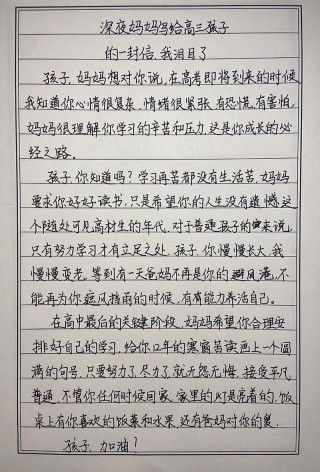 深夜妈妈写给高三孩子
的一封信，我泪目了
孩子，妈妈想对你说，在高考即将到来的时候，
我知道你心情很复杂，情绪很紧张，有恐慌，有害怕，
妈妈很理解你学习的辛苦和压力，这是你成长的必
经之路。
孩子，你知道吗？学习再苦都没有生活苦，妈妈
要求你好好读书，只是希望你的人生没有遗憾，这
个随处可见高材生的年代，对于普通孩子的来说，
只有努力学习才有立足之处，孩子，你慢慢长大，我
慢慢变老，等到有一天爸妈不再是你的避风港，不
能再为你遮风挡雨的时候，有能力养活自己。
在高中最后的关键阶段，妈妈希望你合理安
排好自己的学习，给你12年的寒窗苦读画上一个圆
满的句号，只要努力了，尽力了，就无怨无悔，接受平凡
普通，不管你任何时候回家，家里的灯是亮着的，饭
桌上有你喜欢的饭菜和水果，还有爸妈对你的爱，
孩子，加油！